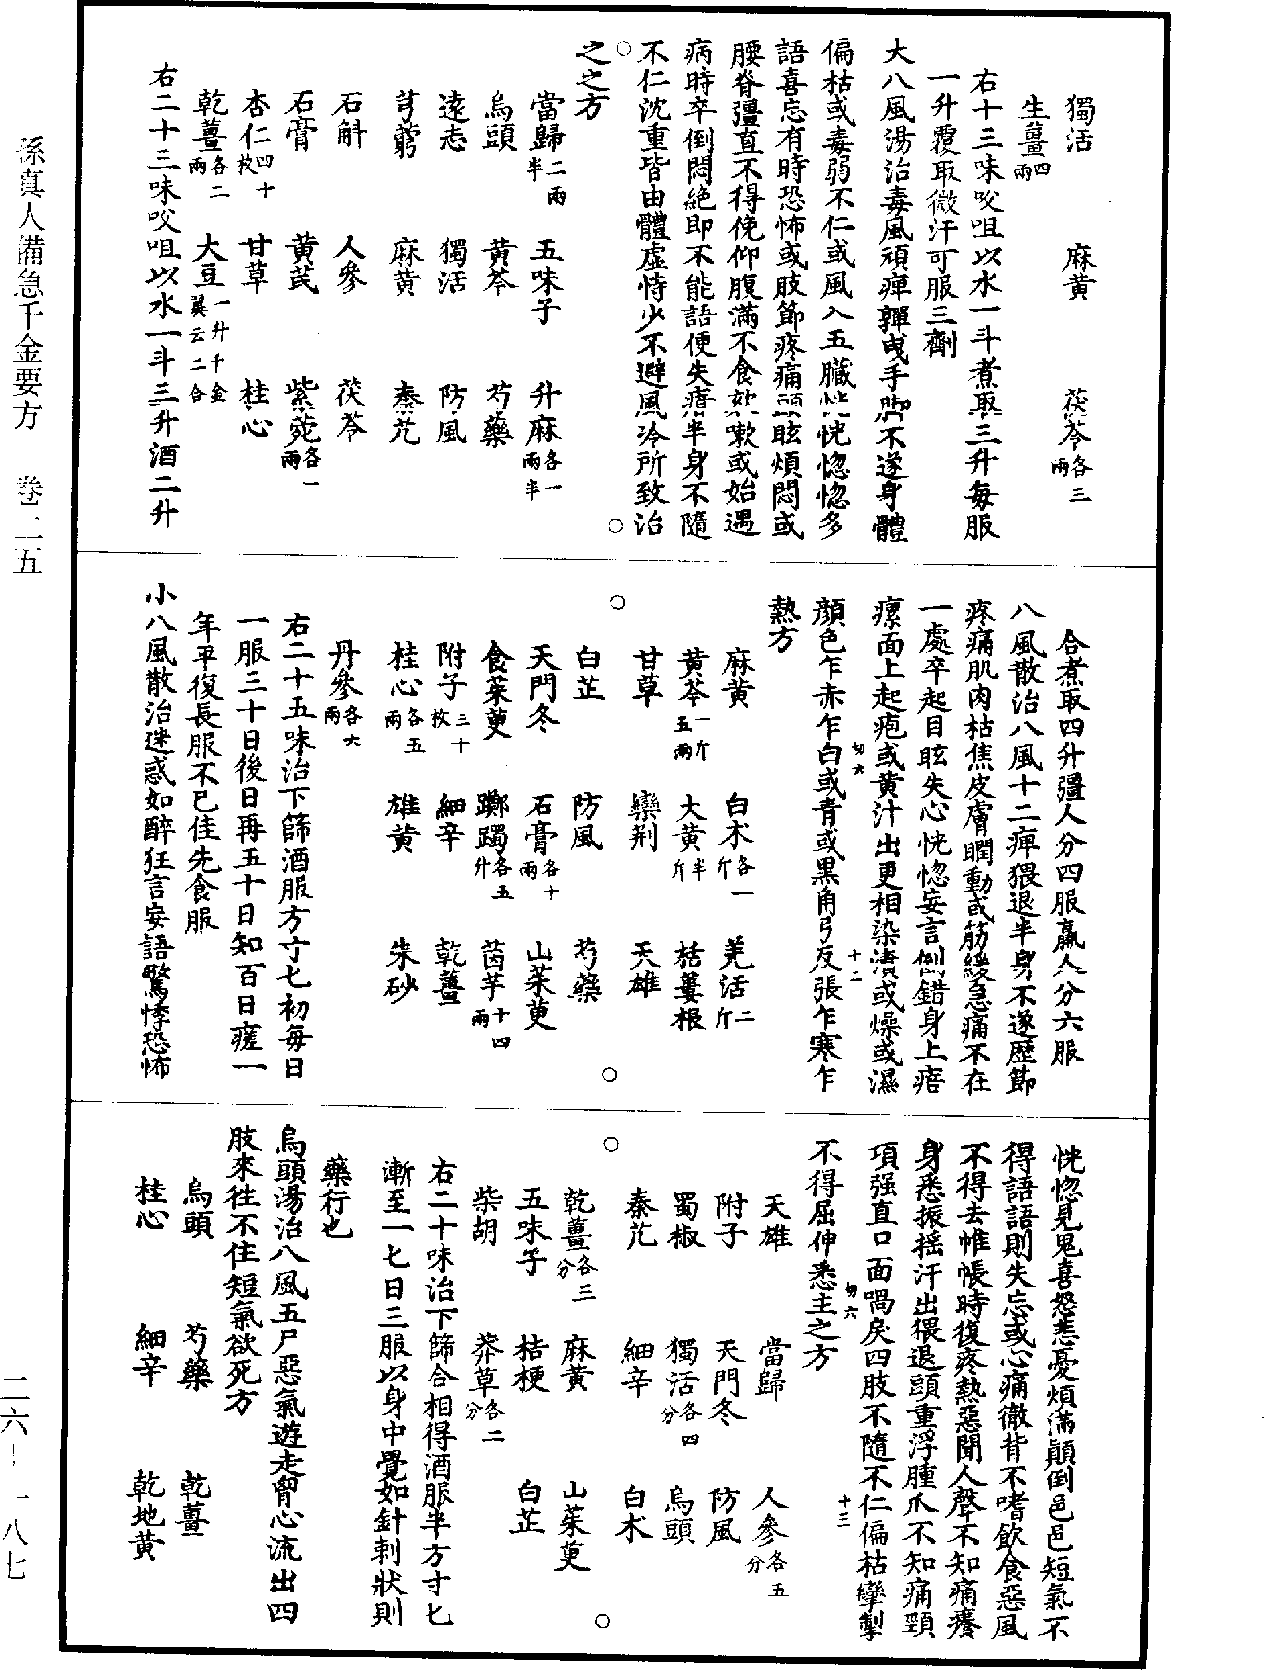 獨活　麻黃　茯苓各三兩
生薑四兩
右十三味㕮咀以水一斗煮取三升每服
一升覆取微汗可服三劑
大八風湯治毒風頑痹嚲曳手脚不遂身體
偏枯或毒弱不仁或風入五臟恍恍惚惚多
語喜忘有時恐怖或肢節疼痛頭眩煩悶或
腰脊彊直不得俛仰腹滿不食欬嗽或始遇
病時卒倒悶絕即不能語便失瘖半身不隨
不仁沈重皆由體虛恃少不避風冷所致治
之之方
當歸二兩半　五味子　升麻各一兩半
烏頭　黃芩　芍藥
遠志　獨活　防風
芎藭　麻黃　秦艽
石斛　人參　茯苓
石膏　黃芪　紫菀各一兩
杏仁四十枚　甘草　桂心
乾薑各二兩　大豆一升千金翼云二合
右二十三味㕮咀以水一斗三升酒二升
合煮取四升彊人分四服羸人分六服
八風散治八風十二痹猥退半身不遂歷節
疼痛肌肉枯焦皮膚瞤動或筋緩急痛不在
一處卒起目眩失心恍惚妄言倒錯身上瘖
瘰面上起疱或黃汁出更相染漬或燥或濕
顏色乍赤乍白或青或黑角弓反張乍寒乍
熱方
麻黃　白朮各一斤　羌活二斤
黃芩一斤五兩　大黃半斤　栝蔞根
甘草　欒荆　天雄
白芷　防風　芍藥
天門冬　石膏各十兩　山茱萸
食茱萸　躑躅各五升　茵芋十四兩
附子三十枚　細辛　乾薑
桂心各五兩　雄黃　朱砂
丹參各六兩
右二十五味治下篩酒服方寸匕初每日
一服三十日後日再五十日知百日瘥一
年平復長服不已佳先食服
小八風散治迷惑如醉狂言妄語驚悸恐怖
恍惚見鬼喜怒悲憂煩滿顛倒邑邑短氣不
得語語則失忘或心痛徹背不嗜飲食惡風
不得去帷帳時復疼熱惡聞人聲不知痛癢
身悉振搖汗出猥退頭重浮腫爪不知痛頸
項强直口面喎戾四肢不隨不仁偏枯攣掣
不得屈伸悉主之方
天雄　當歸　人參各五分
附子　天門冬　防風
蜀椒　獨活各四分　烏頭
秦艽　細辛　白朮
乾薑各三分　麻黃　山茱萸
五味子　桔梗　白芷
柴胡　莽草各二分
右二十味治下篩合相得酒服半方寸匕
漸至一七日三服以身中覺如針刺狀則
藥行也
烏頭湯治八風五尸惡氣遊走胷心流出四
肢來往不住短氣欲死方
烏頭　芍藥　乾薑
桂心　細辛　乾地黃
切六
十二
切六
十三
孫真人備急千金要方　卷二五
二六—一八七